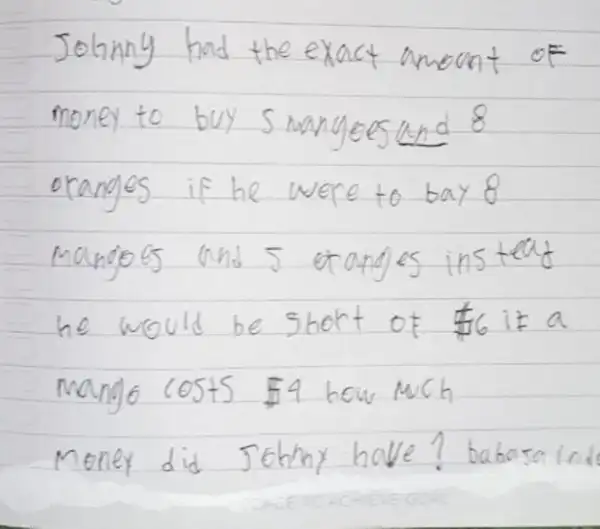 Johnny had the exact amount of
money to buy 5 mangoes and 8
oranges if he were to bay 8
mangoes and 5 oranges instead
he would be short of $6 if a
mango costs $4 how much
money did Johnny have?